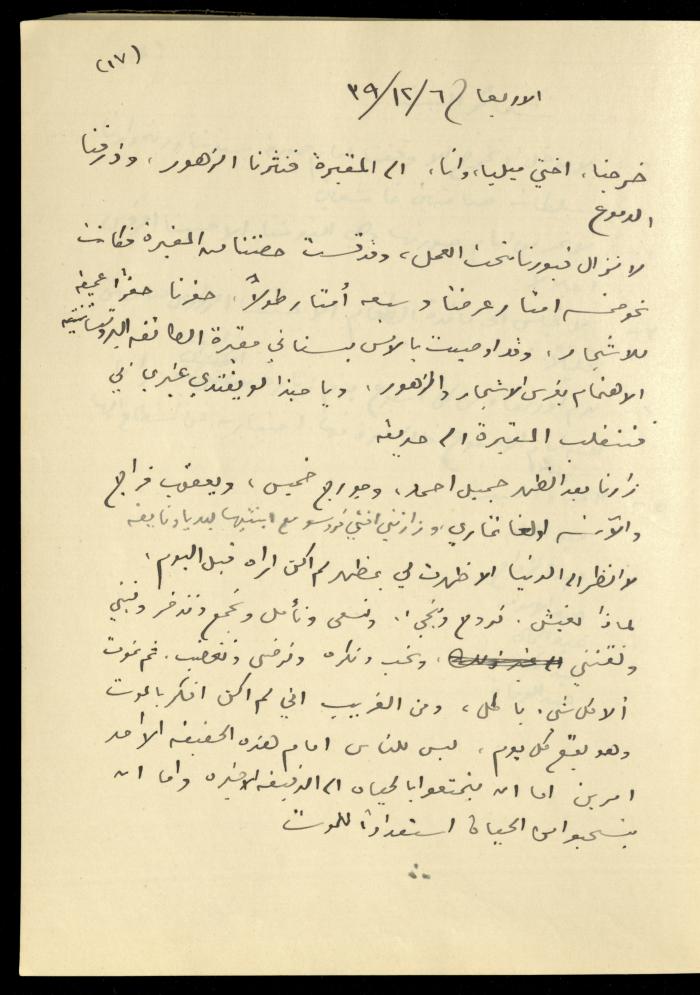 (١٧)
الاربعا ٦/١٢/٣٩
خرجنا، اختي ميليا، وانا، الى المقبرة فنثرنا الزهور، وذرفنا
الدموع
لا تزال قبورنا تحت العمل، وقد قست حصتنا من المقبرة فكانت
نحو خمسه امتار عرضاً وسبعه أمتار طولاً، حفرنا حفراً عميقه
للاشجار، وقد اوصيت بالامس بستاني مقبرة الطائفه البروتستانتيه
الاهتمام بغرس الاشجار والزهور، ويا حبذا لو يقتدي غيري بي
فتنقلب المقبرة الى حديقه
زارنا بعد الظهر جميل احمد، وجورج خميس، ويعقوب فراج
والآنسه اولغا نحاري، وزارتني اختي فروسو مع ابنتيها ليديا ونايفه
لا انظر الى الدنيا الا ظهرت لي بمظهر لم اكن اراه قبل اليوم،
لماذا نعيش. نروح ونجي، ونسعى ونأمل ونجمع وندخر ونبني
ونقتني، ونحب ونكره ونرضى ونغضب. ثم نموت
ألا كل شي. باطل، ومن الغريب اني لم اكن افكر بالموت
وهو يقع كل يوم، ليس للناس امام هذه الحقيقه الا احد
امرين اما ان يتمتعوا بالحياه الى الدقيقه الاخيره واما ان
ينسحبوا من الحياة استعداداً للموت